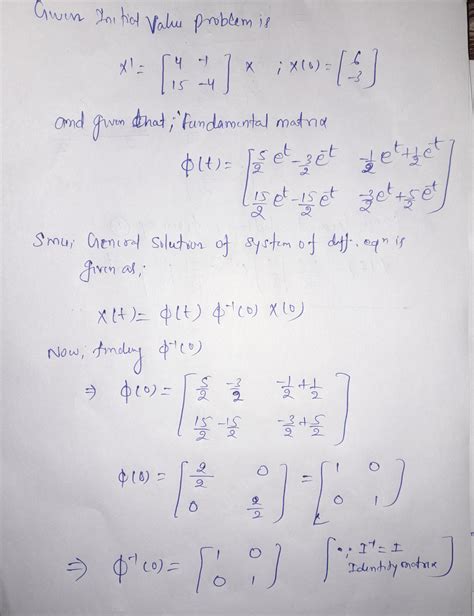 Given Initial Value problem is
x' = [4 -1; 15 -4] x ; x(0) = [6; -3]
and given that; fundamental matrix
ϕ(t) = [5/2 e^t - 3/2 e^-t   -1/2 e^t + 1/2 e^-t; 15/2 e^t - 15/2 e^-t   -3/2 e^t + 5/2 e^-t]
General Solution of system of diff. eqn is
given as,
x(t) = ϕ(t) ϕ^-1(0) x(0)
Now, finding ϕ^-1(0)
⇒ ϕ(0) = [5/2 -3/2   -1/2 + 1/2; 15/2 - 15/2   -3/2 + 5/2]
ϕ(0) = [2/2 0; 0 2/2] = [1 0; 0 1]
⇒ ϕ^-1(0) = [1 0; 0 1] [∵ I^-1 = I
Identity matrix]